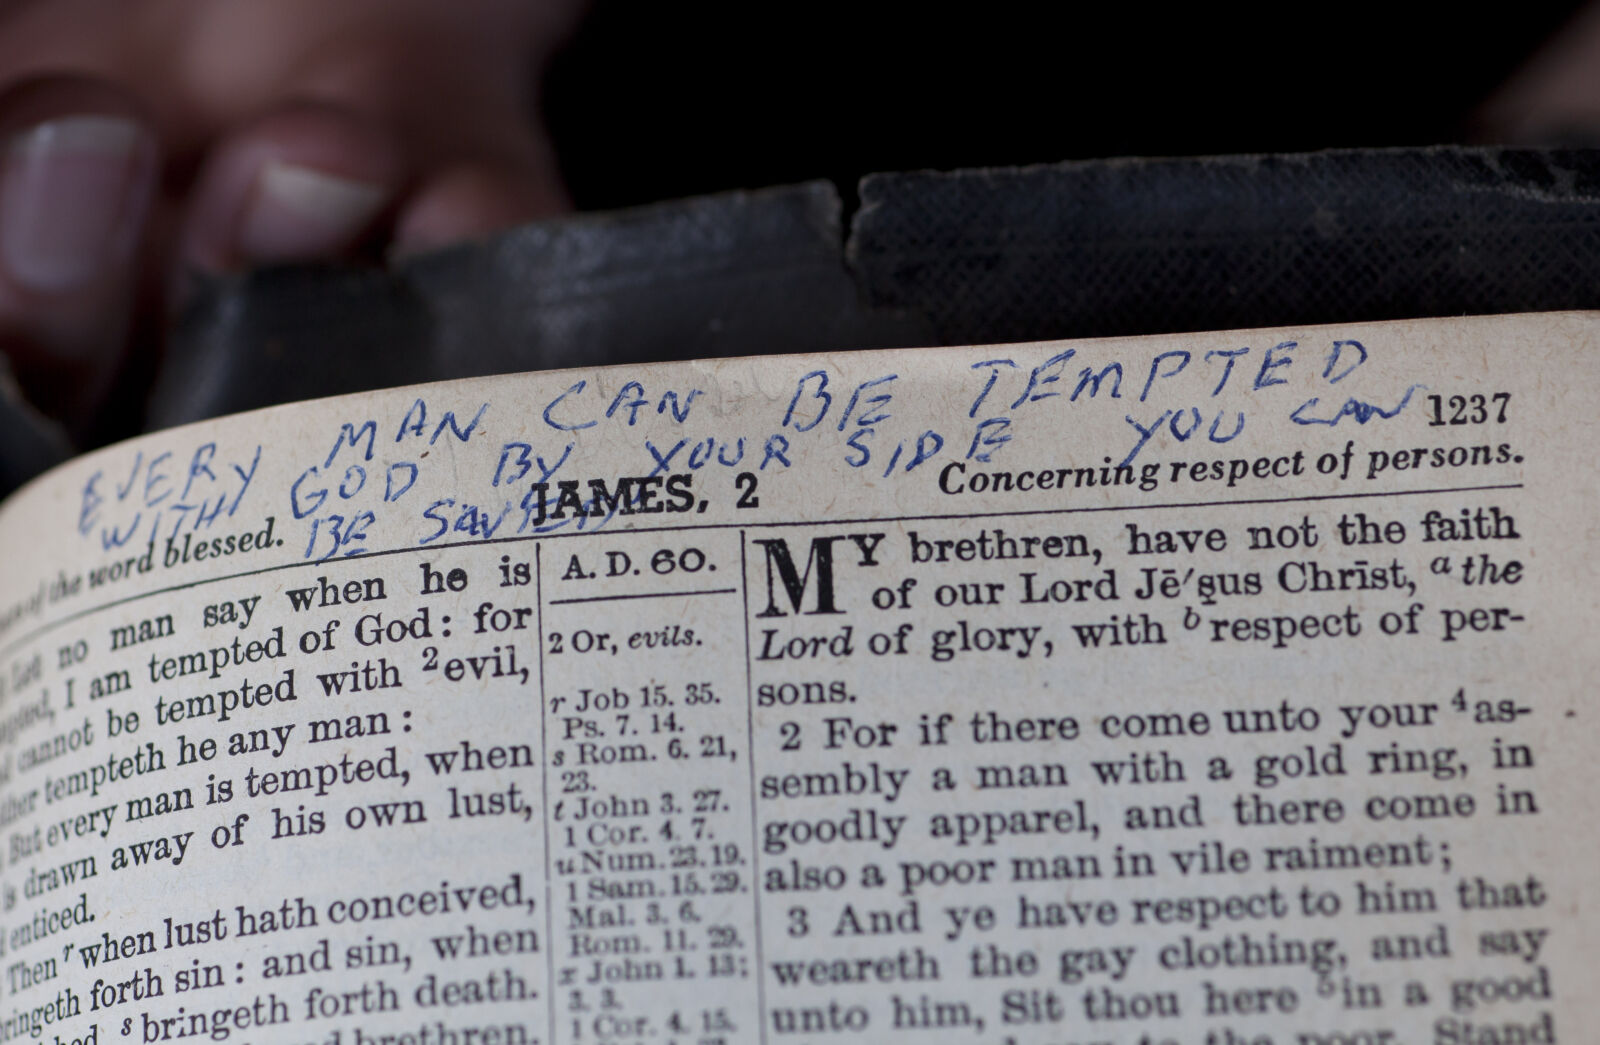 EVERY MAN CAN BE TEMPTED
WITH GOD BY YOUR SIDE YOU CAN
BE SAVED
1237
of the word blessed.
JAMES, 2
Concerning respect of persons.
no man say when he is
I am tempted of God: for
cannot be tempted with ²evil,
tempteth he any man:
But every man is tempted, when
is drawn away of his own lust,
enticed.
Then ʳwhen lust hath conceived,
bringeth forth sin: and sin, when
ˢbringeth forth death.
brethren.
A. D. 60.
2 Or, evils.
r Job 15. 35.
Ps. 7. 14.
s Rom. 6. 21,
23.
t John 3. 27.
1 Cor. 4. 7.
u Num. 23. 19.
1 Sam. 15. 29.
Mal. 3. 6.
Rom. 11. 29.
x John 1. 13;
3. 3.
1 Cor. 4. 15.
MY brethren, have not the faith
of our Lord Jē′ṣus Chrīst, ᵃthe
Lord of glory, with ᵇrespect of per-
sons.
2 For if there come unto your ⁴as-
sembly a man with a gold ring, in
goodly apparel, and there come in
also a poor man in vile raiment;
3 And ye have respect to him that
weareth the gay clothing, and say
unto him, Sit thou here ⁵in a good
to the poor, Stand